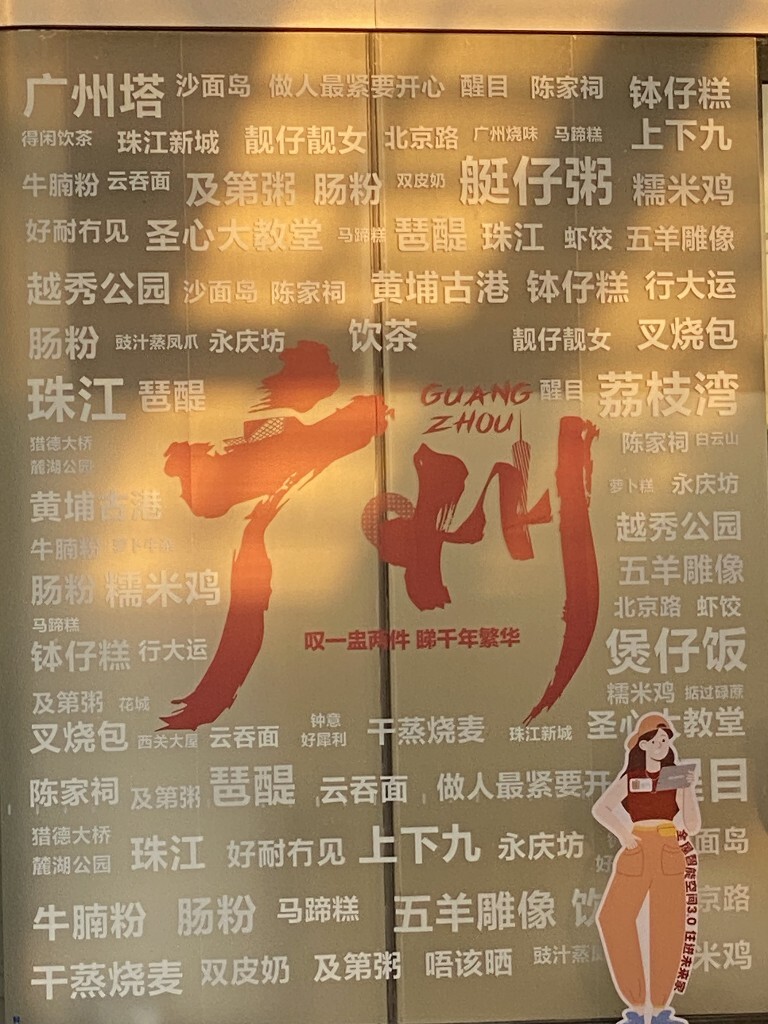 广州塔 沙面岛 做人最紧要开心 醒目 陈家祠 钵仔糕
得闲饮茶 珠江新城 靓仔靓女 北京路 广州烧味 马蹄糕 上下九
牛腩粉 云吞面 及第粥 肠粉 双皮奶 艇仔粥 糯米鸡
好耐冇见 圣心大教堂 马蹄糕 琶醍 珠江 虾饺 五羊雕像
越秀公园 沙面岛 陈家祠 黄埔古港 钵仔糕 行大运
肠粉 豉汁蒸凤爪 永庆坊 饮茶 靓仔靓女 叉烧包
珠江 琶醍 GUANG 醒目 荔枝湾
ZHOU
广州
猎德大桥 陈家祠 白云山
麓湖公园 萝卜糕 永庆坊
黄埔古港 越秀公园
牛腩粉 五羊雕像
肠粉 糯米鸡 北京路 虾饺
马蹄糕
叹一盅两件 睇千年繁华
钵仔糕 行大运 煲仔饭
及第粥 花城 糯米鸡 掂过碌蔗
叉烧包 西关大屋 云吞面 钟意 干蒸烧麦 珠江新城 圣心大教堂
好犀利
陈家祠 及第粥 琶醍 云吞面 做人最紧要开 醒目
猎德大桥 珠江 好耐冇见 上下九 永庆坊 面岛
麓湖公园 好
牛腩粉 肠粉 马蹄糕 五羊雕像 饮 京路
干蒸烧麦 双皮奶 及第粥 唔该晒 豉汁蒸 米鸡
全屋智能空间3.0 住进未来家